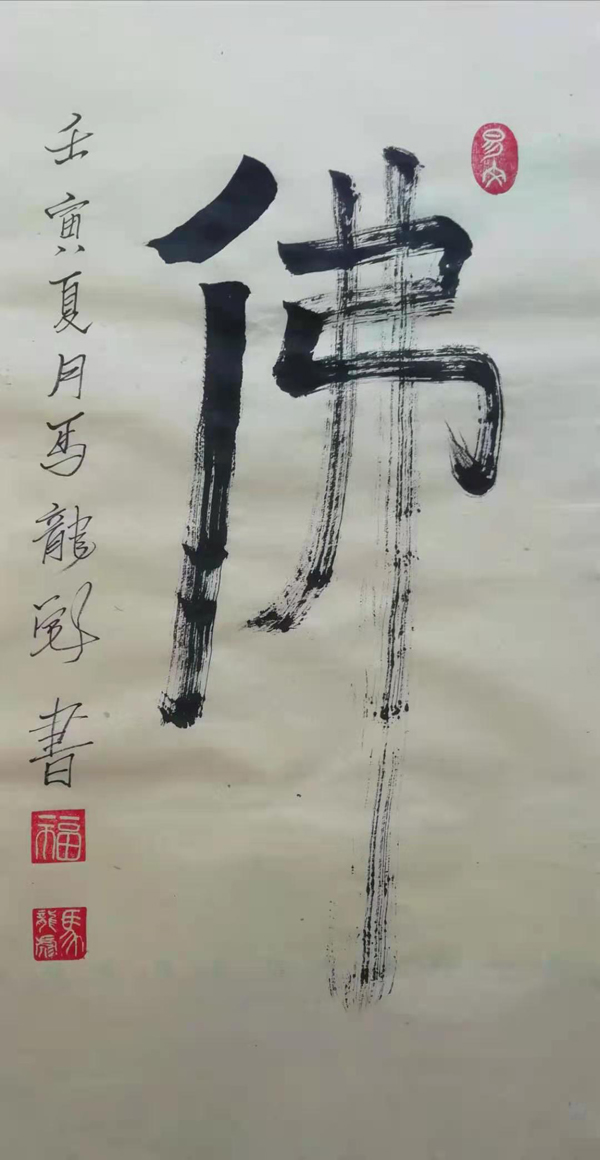 易安
佛
壬寅夏月馬龍書
福
馬龍